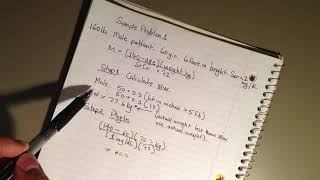 Sample Problem 1
160lb Male patient. 60y.o. 6 feet in height. Scr=1
M = (140-age)(weight kg)
Scr × 72
Step 1 Calculate IBW.
Male: 50+2.3 (ht in inches > 5ft)
50+2.3(12)
= 77.6 kg
(actual weight less than
use actual weight).
Step 2
(140-60)(72.7kg)
(1 mg/dL)(72)
= 80.7